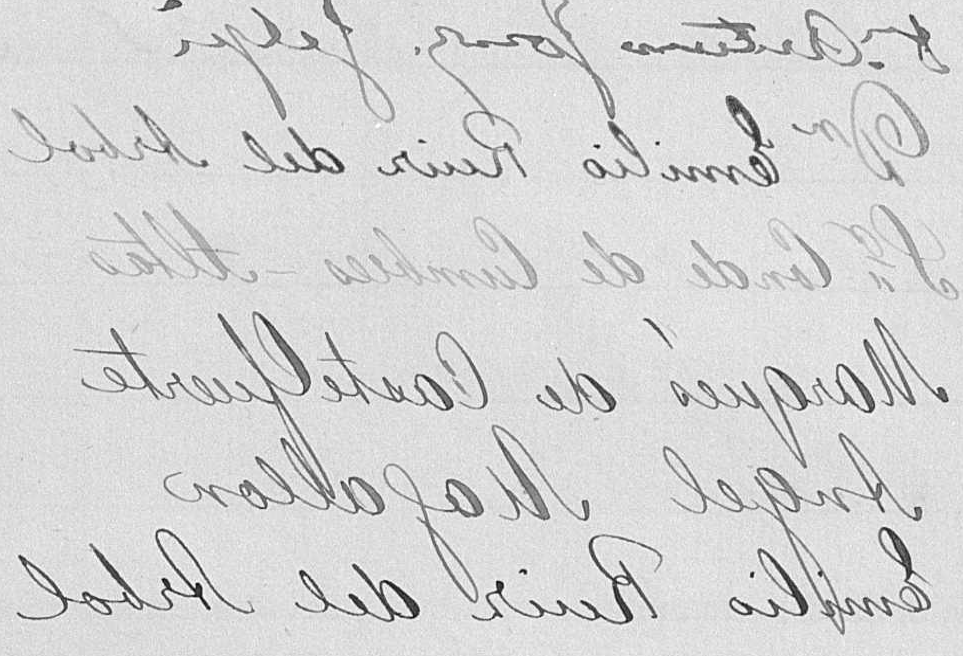 Sr. Arturo Gonz. Jelpi
Dn Emilio Ruiz del Arbol
Sr. Conde de Cumbres-Altas
Marqués de Castelfuerte
Angel Magallon
Emilio Ruiz del Arbol